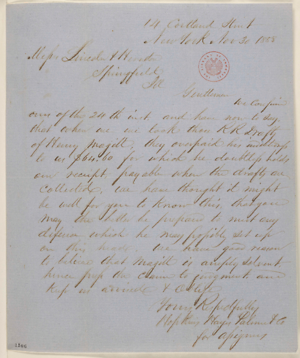 14 Cortland Street
New York Nov 30 1858
Messrs Lincoln & Herndon
Springfield
Ill
Gentlemen
We confirm
ours of the 24th inst and have now to say
that when we sent back those R.R. Drafts
of Henry Magill they overpaid his
to us $64.60 for which he doubtless holds
our receipt payable when the drafts are
collected, we have thought it might
be well for you to know this that you
may the better be prepared to meet any
defence which he may possibly set up
on this head. We have good reason
to believe that Magill is amply solvent
hence press the claim to judgment and
keep us advised &
Yours Respectfully
Hopkins
for assignees